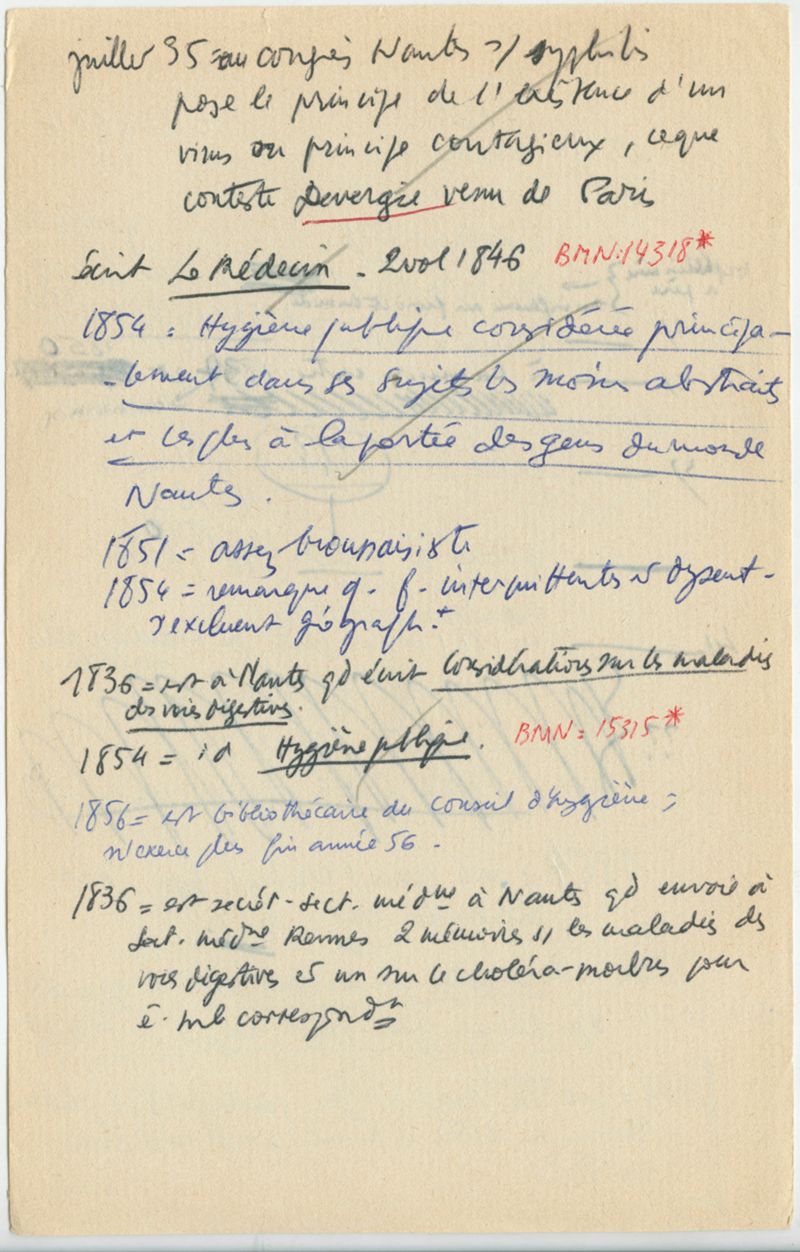 juillet 35 = au congrès Nantes s/ syphilis
pose le principe de l'existence d'un
virus ou principe contagieux, ce que
conteste Devergie venu de Paris
écrit Le Médecin - 2 vol 1846 BMN: 14318*
1854 = Hygiène publique considérée principa-
-lement dans ses sujets les moins abstraits
et les plus à la portée des gens du monde
Nantes.
1851 = assez broussaisiste
1854 = remarque q. f. intermittentes et dysent-
s'excluent géograph.t
1836 = est à Nantes qd écrit Considérations sur les maladies
des voies digestives.
1854 = id Hygiène publique. BMN = 15315*
1856 = est bibliothécaire du Conseil d'hygiène ;
n'exerce plus fin année 56 -
1836 = est secrét. sect. méd.ne à Nantes qd envoie à
sect. méd.ne Rennes 2 mémoires s/ les maladies des
voies digestives et un sur le choléra-morbus pour
ê. mb correspondt